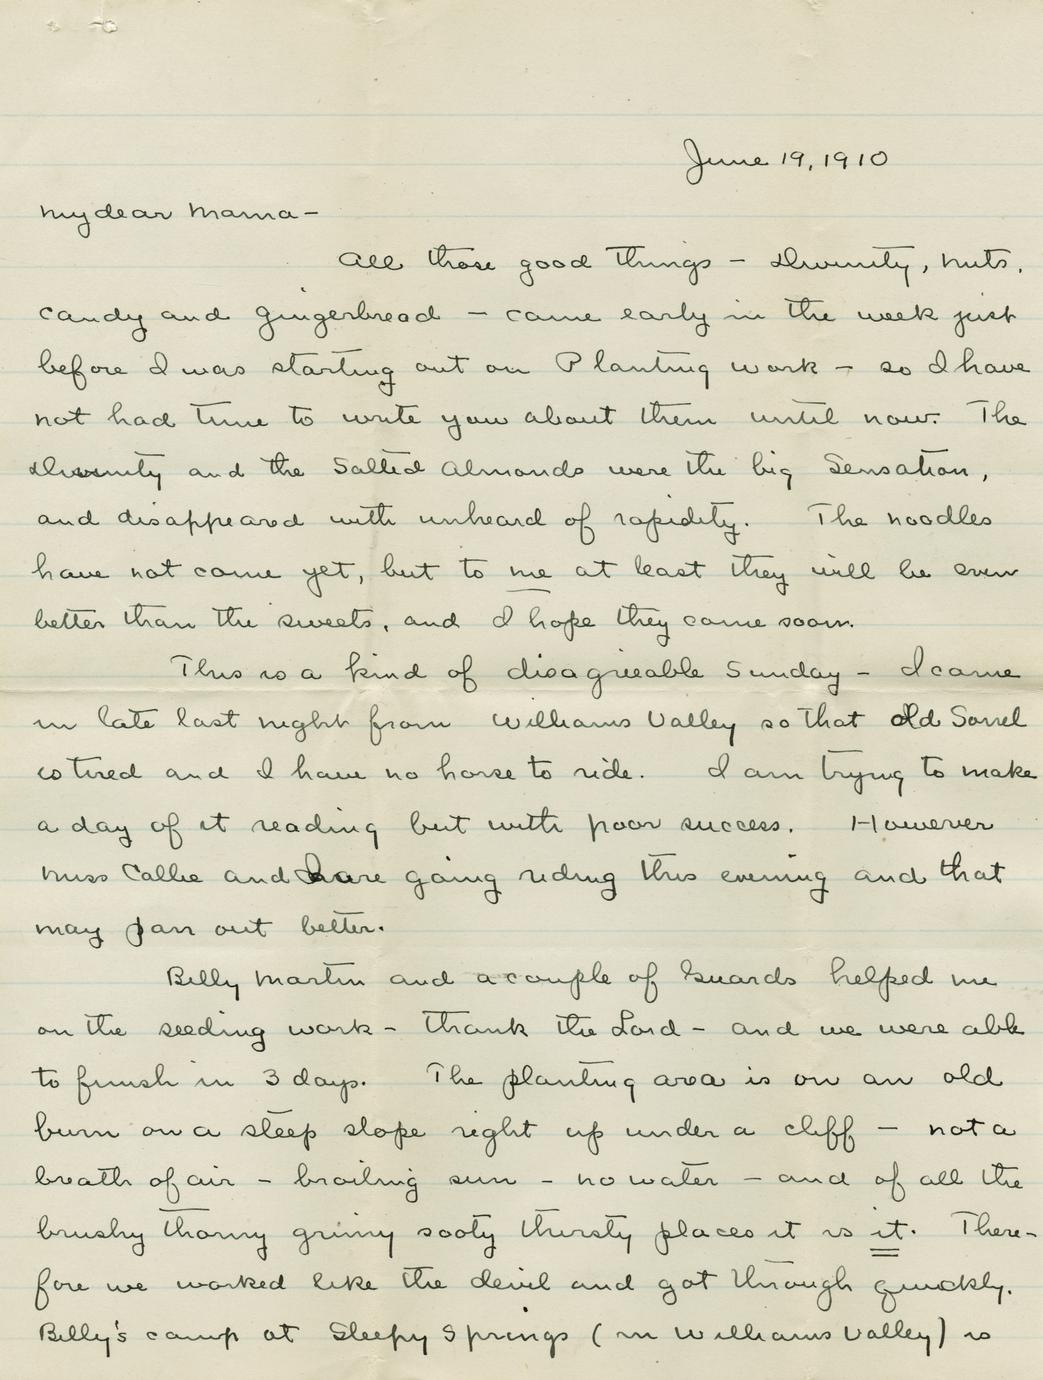 June 19, 1910
My dear Mama –
All those good things – Divinity, nuts,
candy and gingerbread – came early in the week just
before I was starting out on Planting work – so I have
not had time to write you about them until now. The
Divinity and the Salted Almonds were the big Sensation,
and disappeared with unheard of rapidity. The noodles
have not come yet, but to me at least they will be even
better than the sweets, and I hope they come soon.
This is a kind of disagreeable Sunday – I came
in late last night from Williams Valley so that old Sorrel
is tired and I have no horse to ride. I am trying to make
a day of it reading but with poor success. However
Miss Callie and I are going riding this evening and that
may pan out better.
Billy Martin and a couple of Guards helped me
on the seeding work – thank the Lord – and we were able
to finish in 3 days. The planting area is on an old
burn on a steep slope right up under a cliff – not a
breath of air – broiling sun – no water – and of all the
brushy thorny grimy sooty thirsty places it is it. There-
fore we worked like the devil and got through quickly.
Billy's camp at Sleepy Springs (in Williams Valley) is